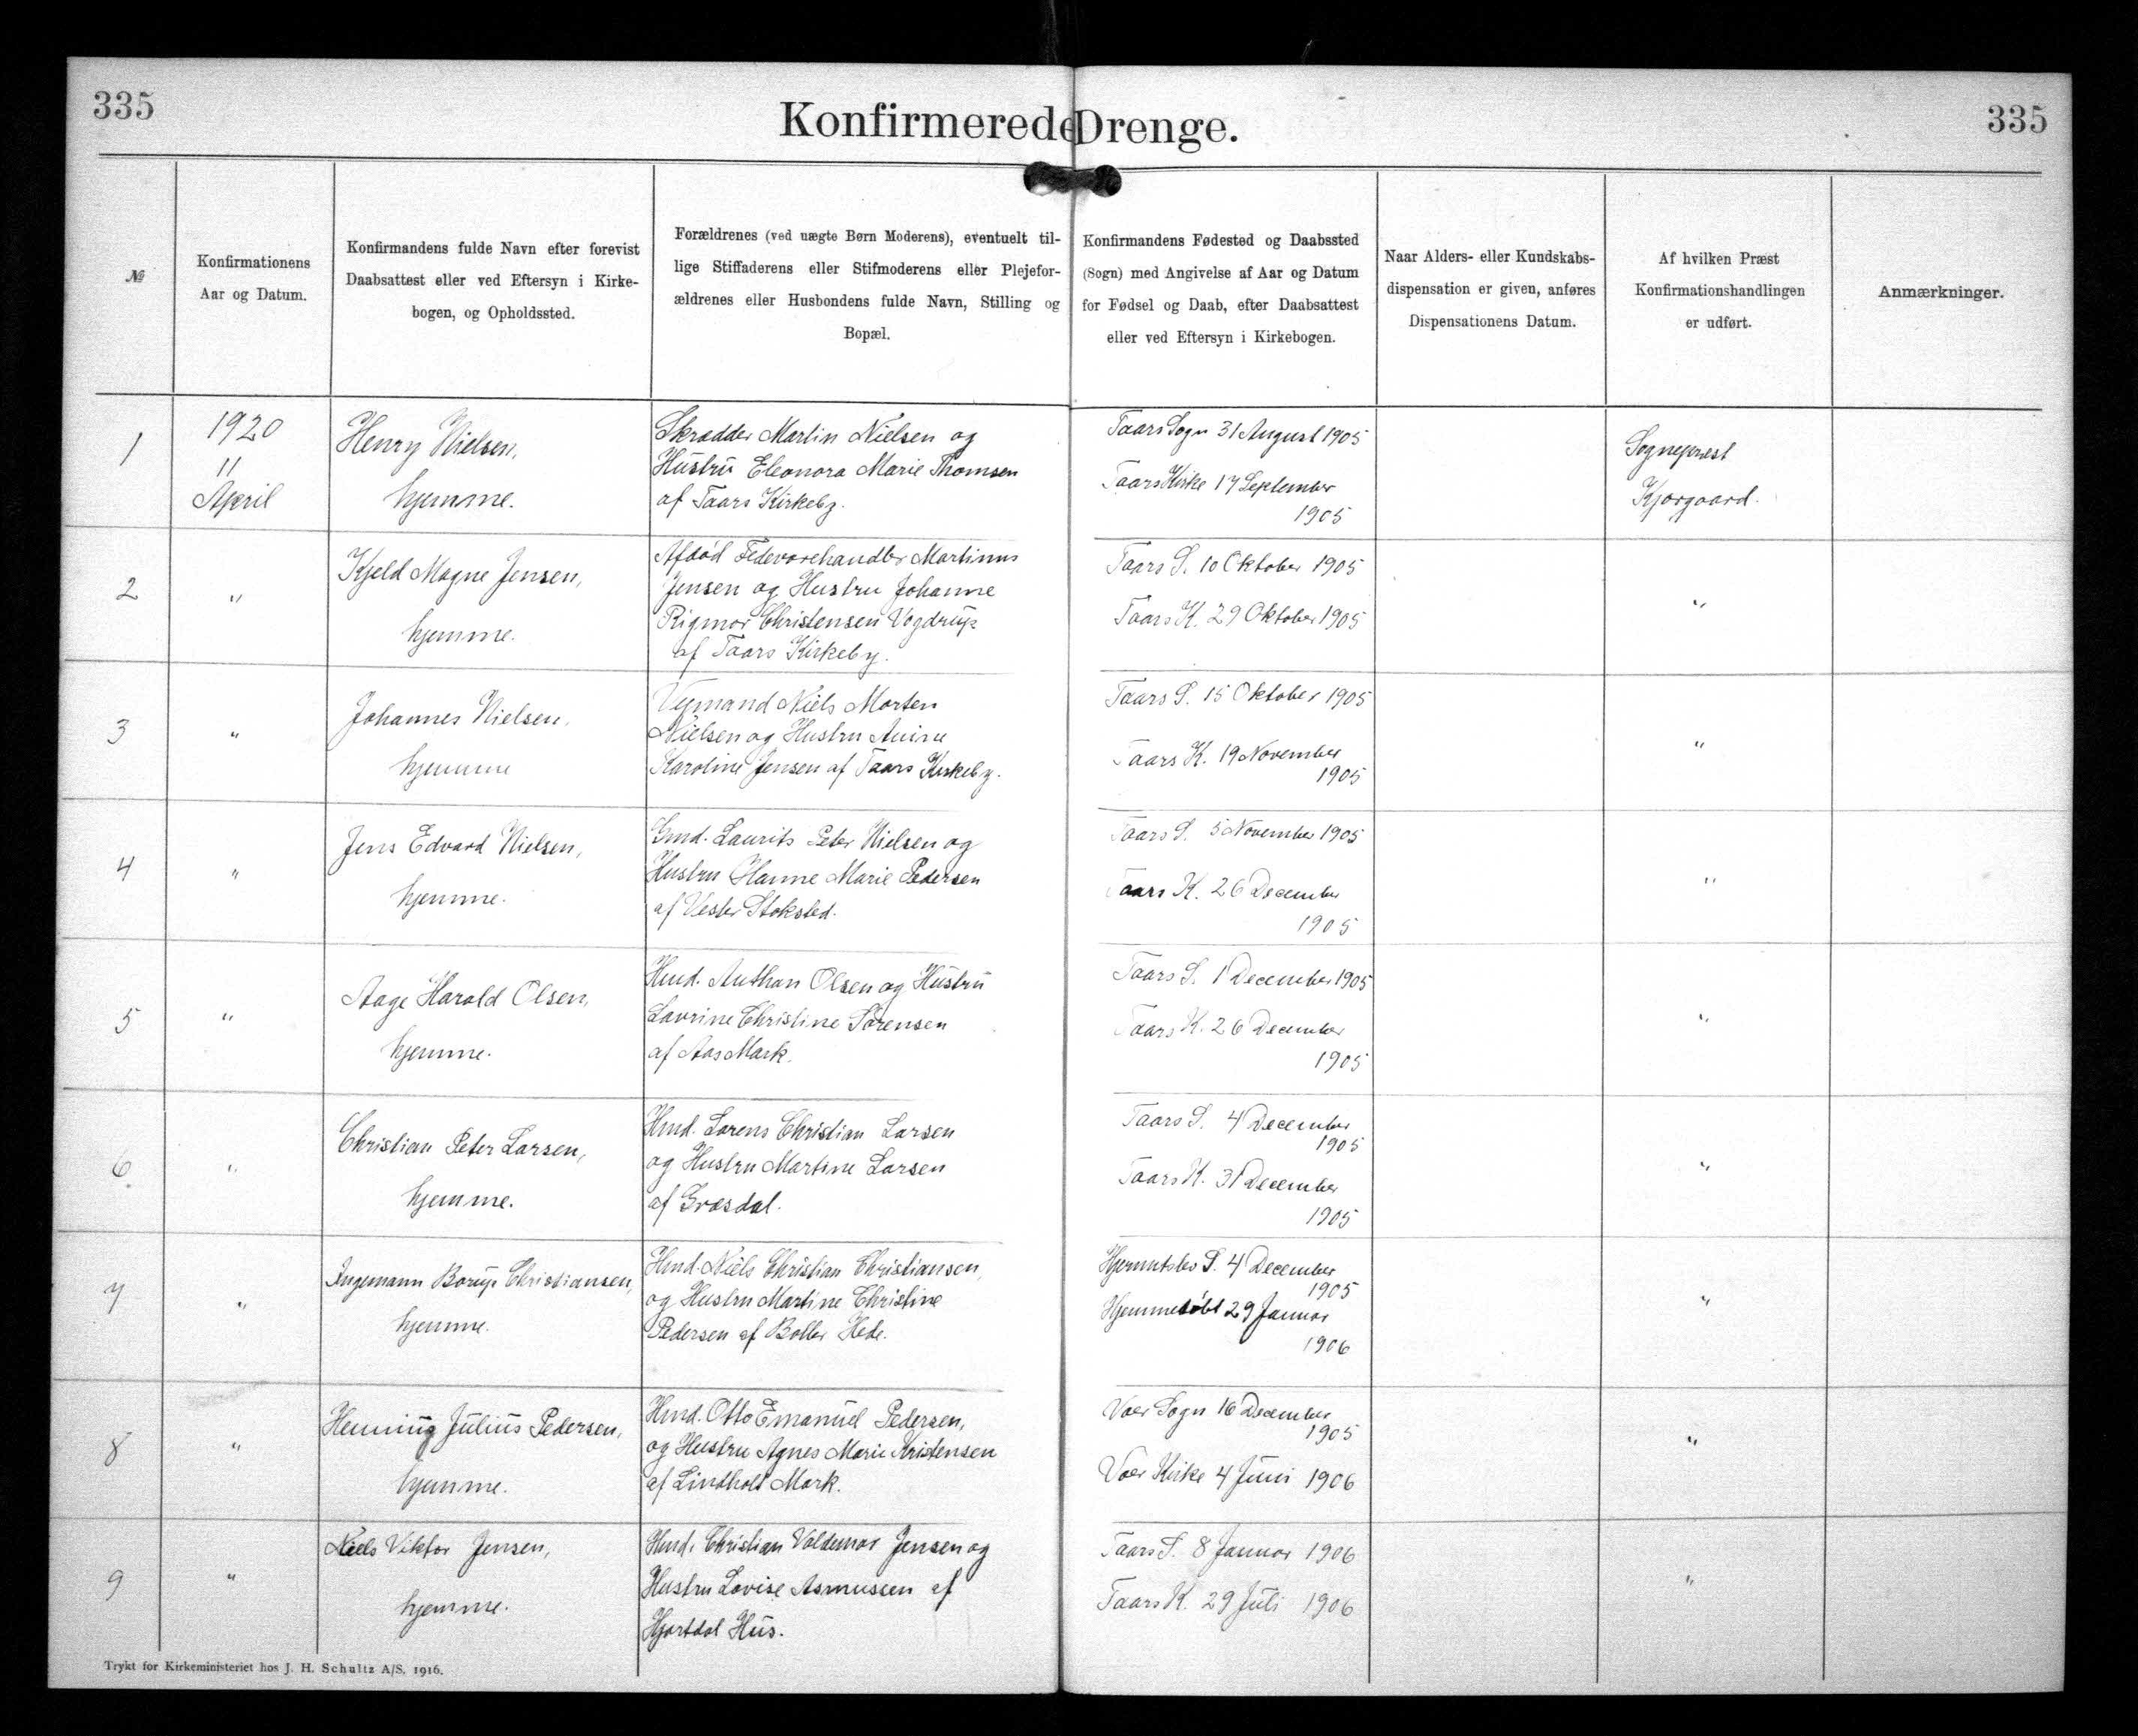 335
Konfirmerede Drenge.
335
№
Konfirmationens
Aar og Datum.
Konfirmandens fulde Navn efter forevist
Daabsattest eller ved Eftersyn i Kirke-
bogen, og Opholdssted.
Forældrenes (ved uægte Børn Moderens), eventuelt til-
lige Stiffaderens eller Stifmoderens eller Plejefor-
ældrenes eller Husbondens fulde Navn, Stilling og
Bopæl.
Konfirmandens Fødested og Daabssted
(Sogn) med Angivelse af Aar og Datum
for Fødsel og Daab, efter Daabsattest
eller ved Eftersyn i Kirkebogen.
Naar Alders- eller Kundskabs-
dispensation er given, anføres
Dispensationens Datum.
Af hvilken Præst
Konfirmationshandlingen
er udført.
Anmærkninger.
1
1920
11
April
Henry Nielsen,
hjemme.
Skrædder Martin Nielsen og
Hustru Eleonora Marie Thomsen
af Taars Kirkeby.
Taars Sogn 31 August 1905
Taars Kirke 17 September
1905
Sognepræst
Kjærgaard.
2
"
Kjeld Magne Jensen,
hjemme.
Afdød Fedevarehandler Martinus
Jensen og Hustru Johanne
Rigmor Christensen Vogdrup
af Taars Kirkeby.
Taars S. 10 Oktober 1905
Taars K. 29 Oktober 1905
"
3
"
Johannes Nielsen,
hjemme
Vejmand Niels Morten
Nielsen og Hustru Anine
Karoline Jensen af Taars Kirkeby.
Taars S. 15 Oktober 1905
Taars K. 19 November
1905
"
4
"
Jens Edvard Nielsen,
hjemme.
Gmd. Laurits Peter Nielsen og
Hustru Hanne Marie Pedersen
af Vester Stoksted.
Taars S. 5 November 1905
Taars K. 26 December
1905
"
5
"
Aage Harald Olsen,
hjemme.
Hmd. Anthon Olsen og Hustru
Lavrine Christine Sørensen
af Aas Mark.
Taars S. 1 December 1905
Taars K. 26 December
1905
"
6
"
Christian Peter Larsen,
hjemme.
Hmd. Lorens Christian Larsen
og Hustru Martine Larsen
af Græsdal.
Taars S. 4 December
1905
Taars K. 31 December
1905
"
7
"
Ingemann Borup Christiansen,
hjemme.
Hmd. Niels Christian Christiansen,
og Hustru Martine Christine
Pedersen af Boller Hede.
Hjermitslev S. 4 December
1905
Hjemmedøbt 29 Januar
1906
"
8
"
Henning Julius Pedersen,
hjemme.
Hmd. Otto Emanuel Pedersen,
og Hustru Agnes Marie Kristensen
af Lindholt Mark.
Voer Sogn 16 December
1905
Voer Kirke 4 Juni 1906
"
9
"
Niels Viktor Jensen,
hjemme.
Hmd. Christian Valdemar Jensen og
Hustru Lovise Asmussen af
Hjortdal Hus.
Taars S. 8 Januar 1906
Taars K. 29 Juli 1906
"
Trykt for Kirkeministeriet hos J. H. Schultz A/S. 1916.